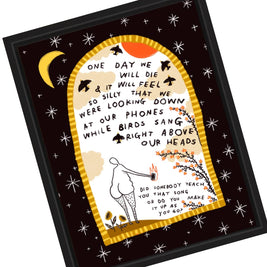 ONE DAY WE
WILL DIE
& IT WILL FEEL
SO SILLY THAT WE
WERE LOOKING DOWN
AT OUR PHONES
WHILE BIRDS SANG
RIGHT ABOVE
OUR HEADS
DID SOMEBODY TEACH
YOU THAT SONG
OR DO YOU MAKE
IT UP AS
YOU GO?